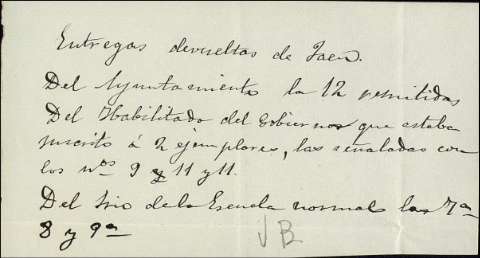 Entregas devueltas de Jaen.
Del Ayuntamiento la 12 remitidas
Del Habilitado del Gobierno que estaba
suscrito á 2 ejemplares, las señaladas con
los nºs 9 y 11 y 11.
Del Srio de la Escuela normal las 7ª
8 y 9ª
JB